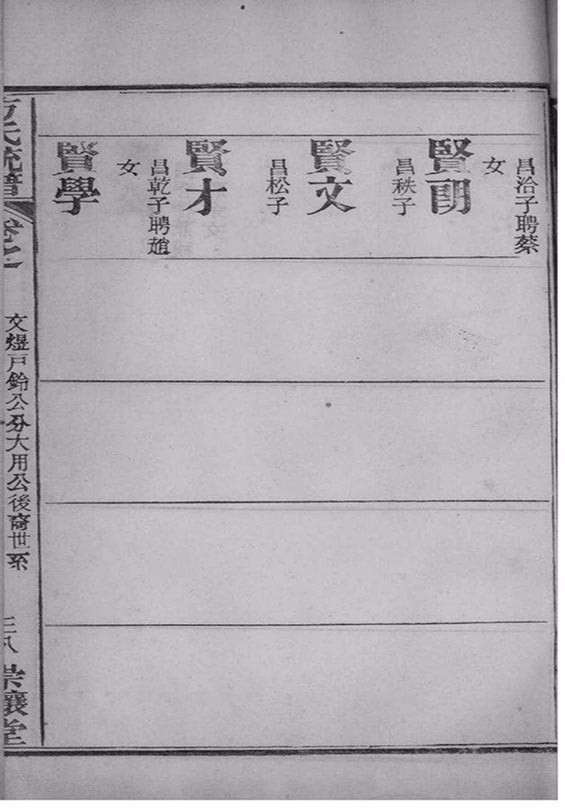 昌洽子聘蔡
女
賢朗
昌秩子
賢文
昌松子
賢才
昌乾子聘趙
女
賢學
文煜戶鈴公分大用公後裔世系
崇讓堂